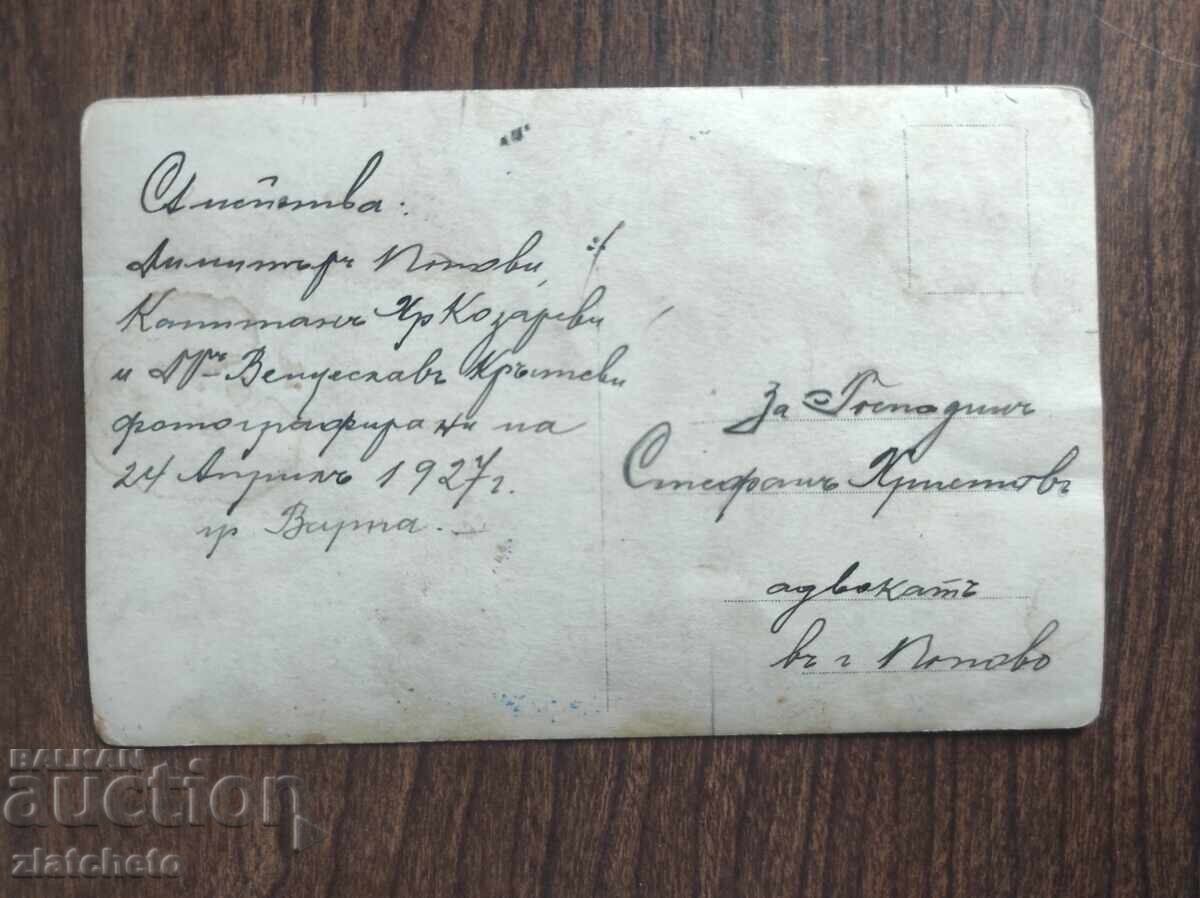 Семейства:
Димитър Попови,
Капитанъ Хр Козареви
и Д-ръ Венцеславъ Кръстеви
фотографирани на
24 Априлъ 1927 г.
гр Варна.
За Господинъ
Стефанъ Христовъ
адвокатъ
въ г Попово
BALKAN
auction
zlatcheto